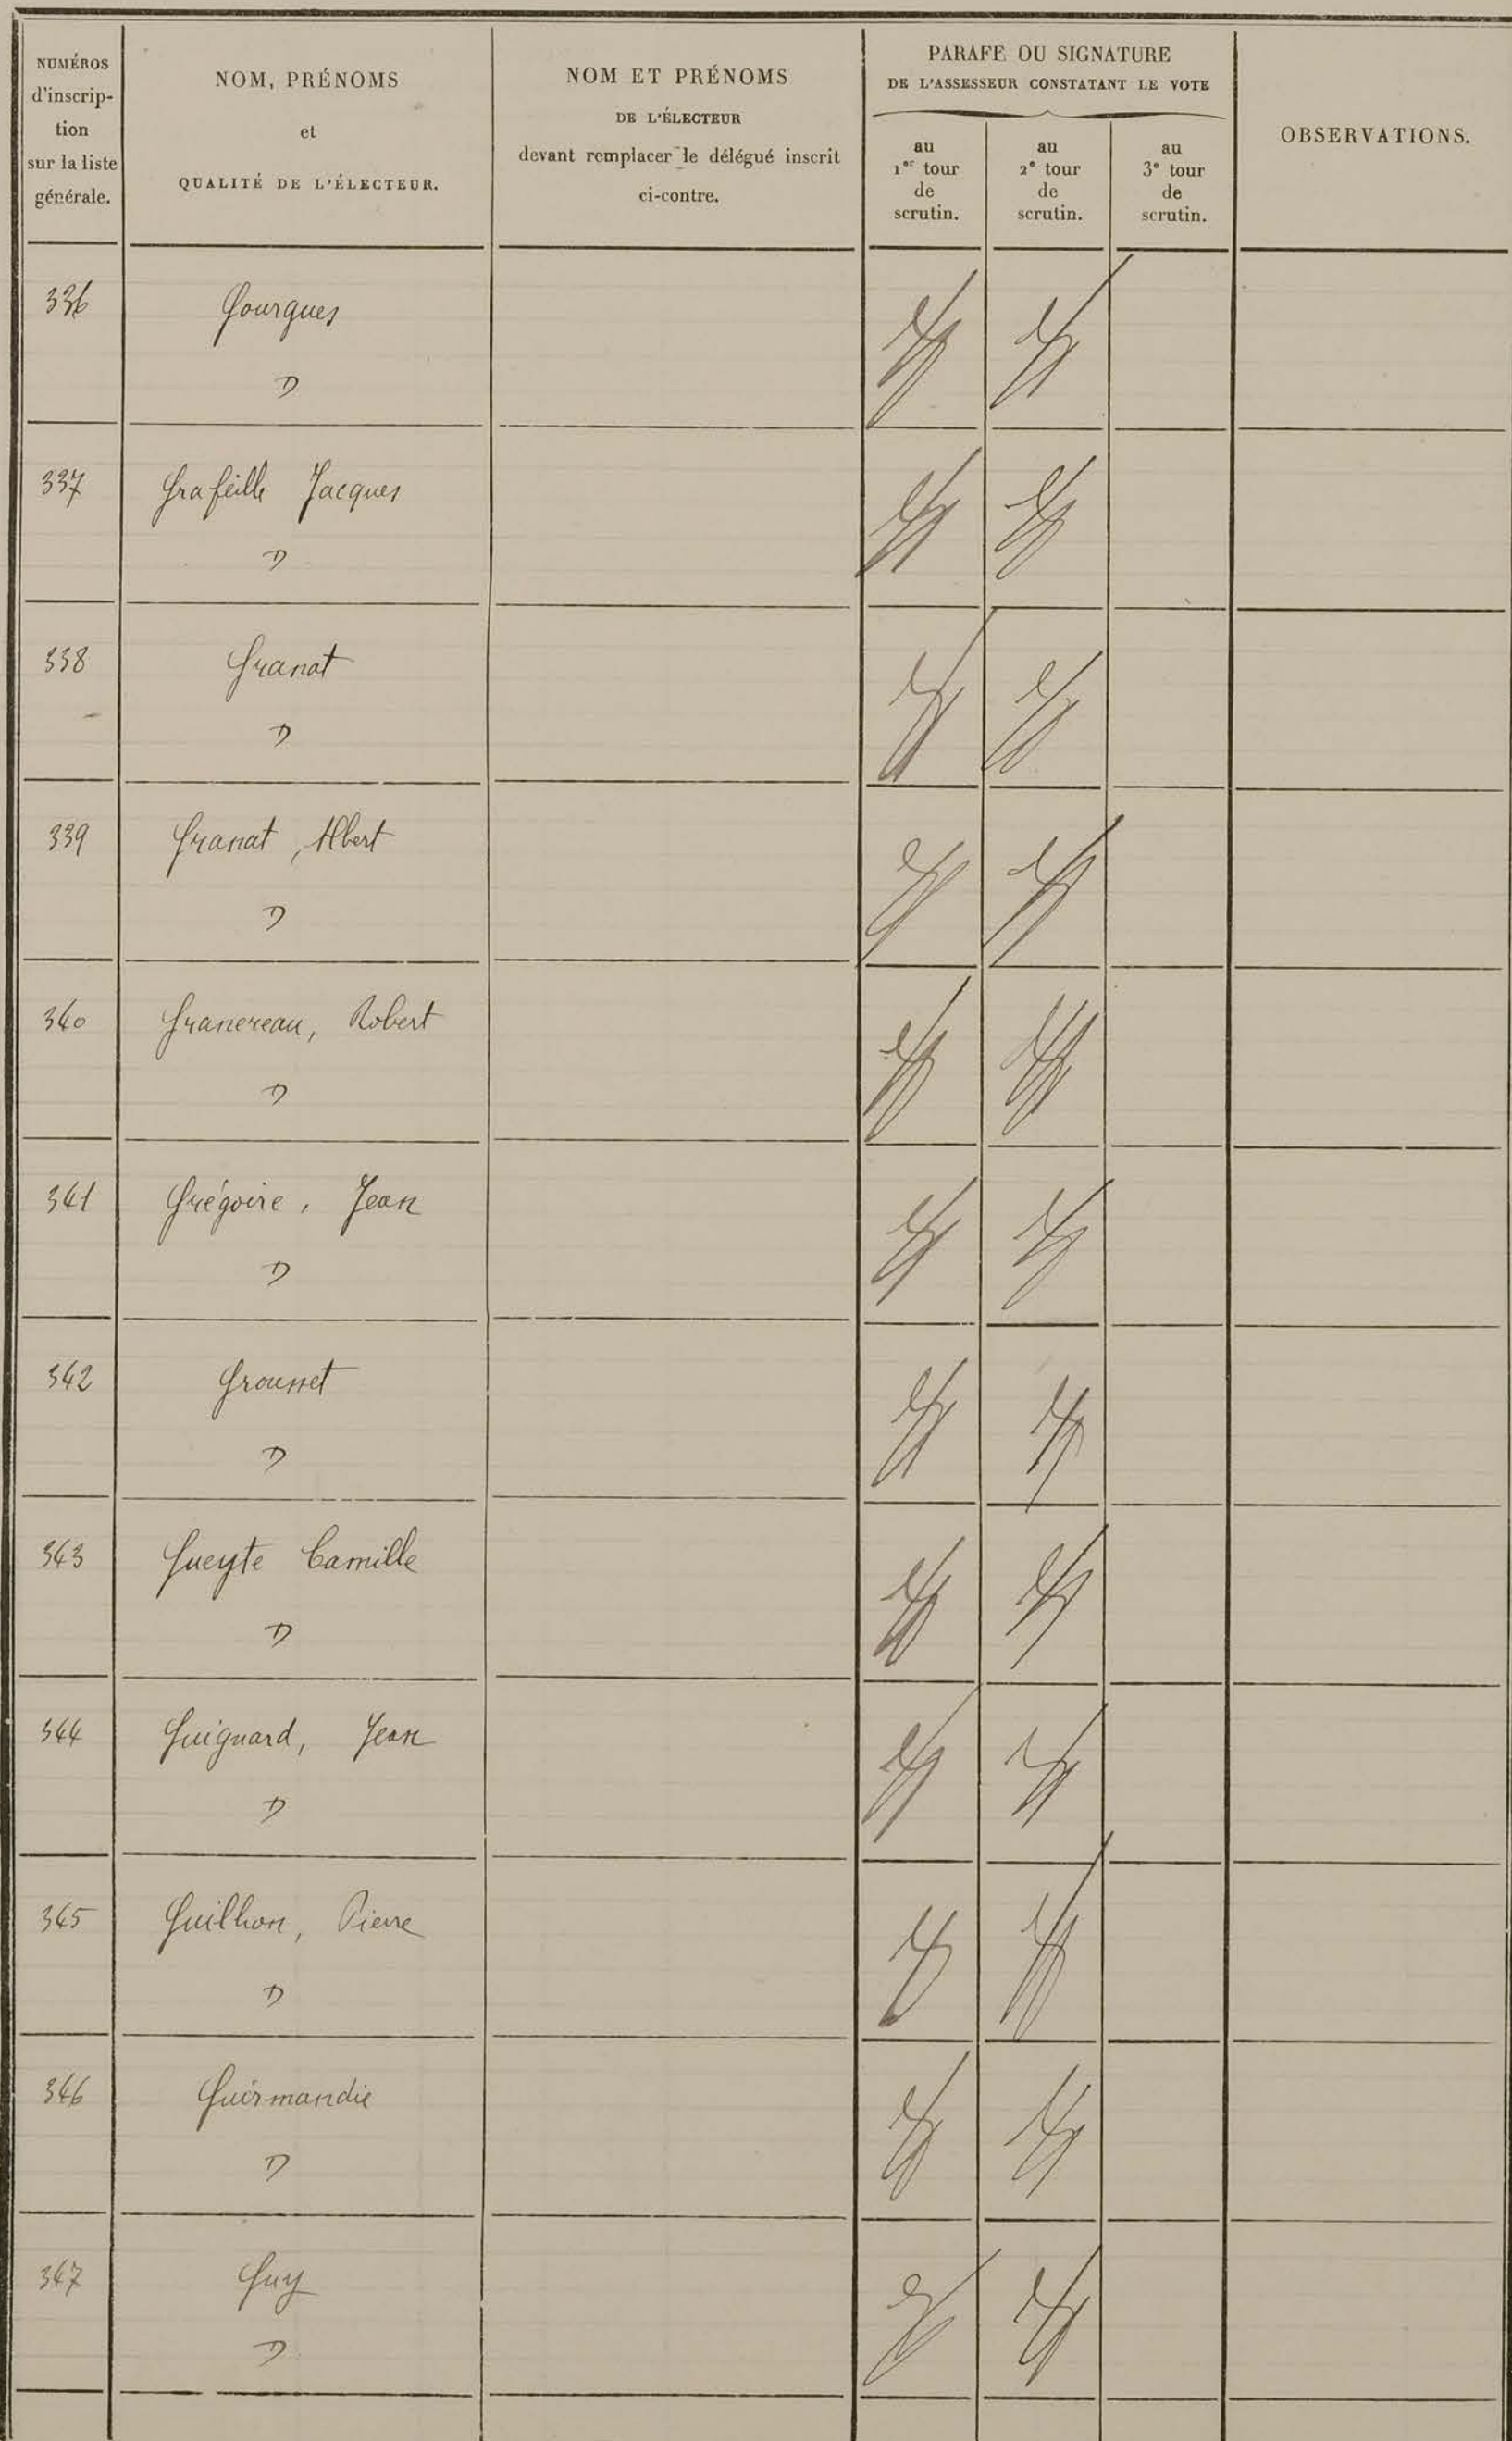 NUMÉROS
d'inscrip-
tion
sur la liste
générale.
NOM, PRÉNOMS
et
QUALITÉ DE L'ÉLECTEUR.
NOM ET PRÉNOMS
DE L'ÉLECTEUR
devant remplacer le délégué inscrit
ci-contre.
PARAFE OU SIGNATURE
DE L'ASSESSEUR CONSTATANT LE VOTE
au
1er tour
de
scrutin.
au
2e tour
de
scrutin.
au
3e tour
de
scrutin.
OBSERVATIONS.
336 Gourgues
D
337 Grafeille Jacques
D
338 Granat
D
339 Granat, Albert
D
340 Granereau, Robert
D
341 Grégoire, Jean
D
342 Grousset
D
343 Gueyte Camille
D
344 Guignard, Jean
D
345 Guilhon, Pierre
D
346 Guirmandie
D
347 Guy
D